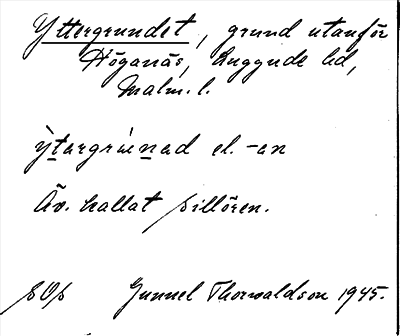 Yttergrundet, grund utanför
Höganäs, Luggude hd,
Malm. l.
ỳtargrúnad el. -an
Äv. kallat Sillören.
SOP Gunnel Thorwaldson 1945.